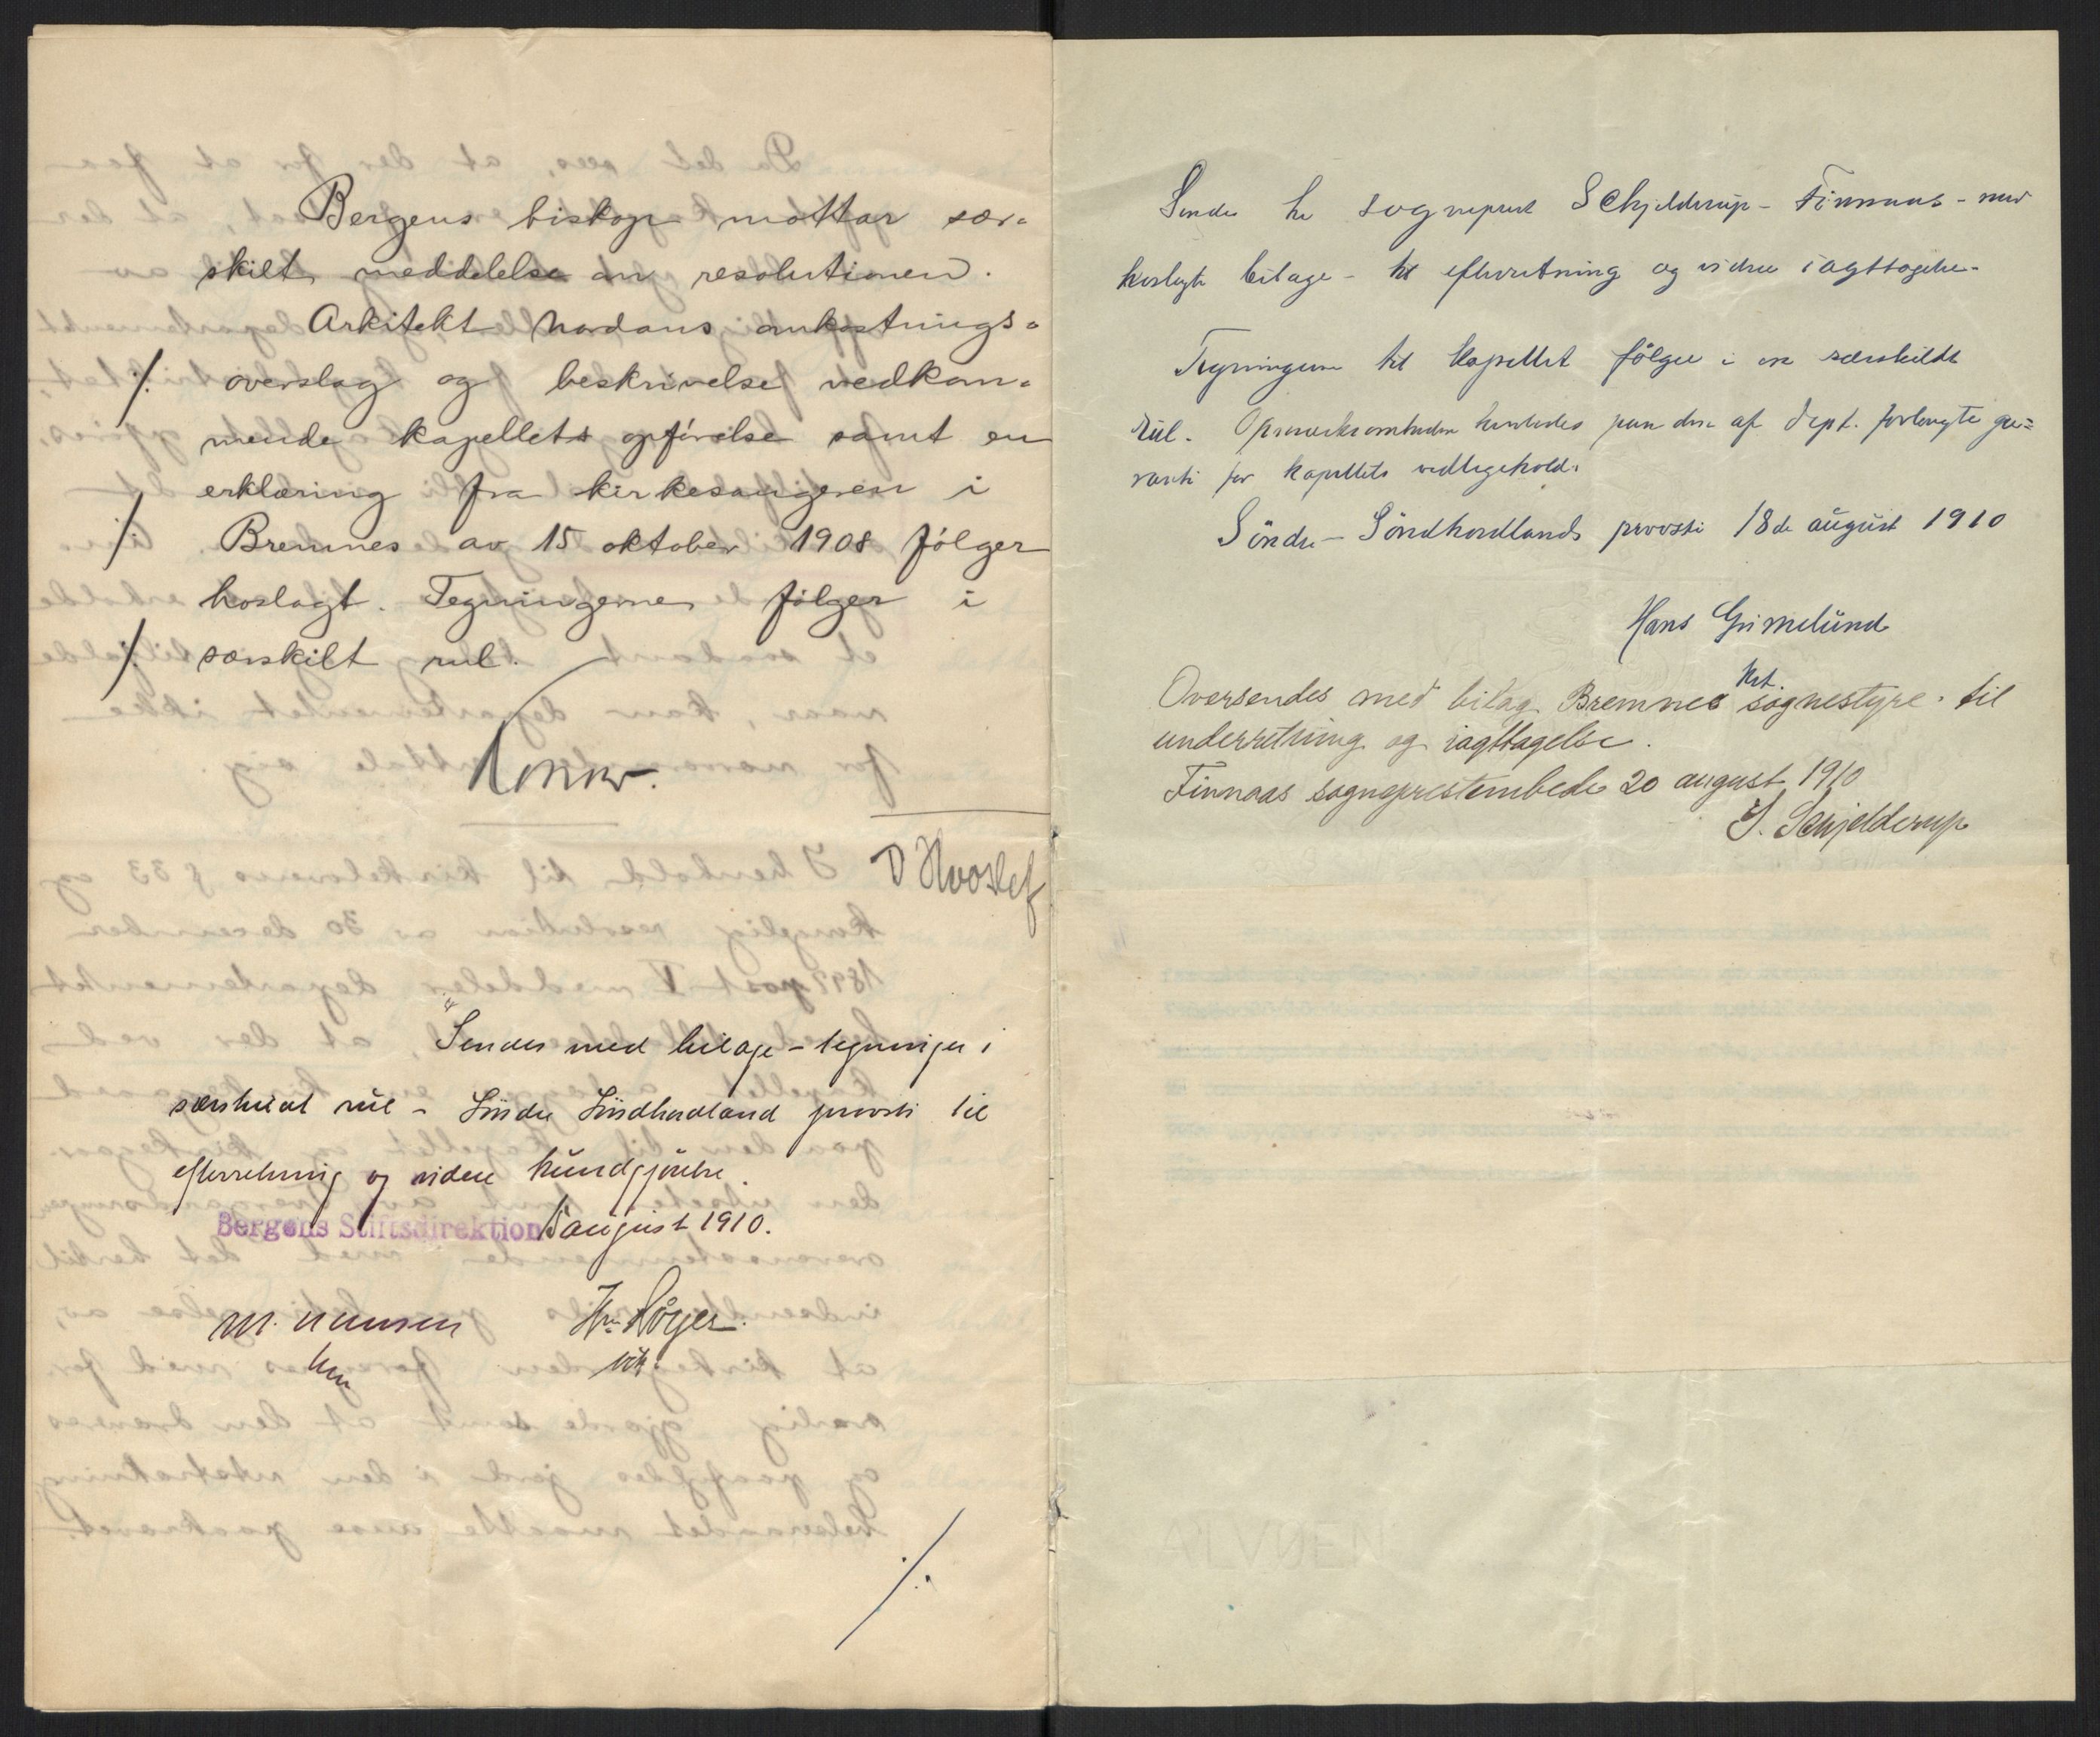 Bergens biskop mottar sær-
skilt meddelelse om resolutionen.
Arkitekt Nordans omkostnings-
./. overslag og beskrivelse vedkom-
mende kapellets opførelse samt en
erklæring fra kirkesangeren i
./. Bremnes av 15 oktober 1908 følger
hoslagt. Tegningerne følger i
./. særskilt rul.
Konow.
D Hvoslef
Sendes med bilage - tegninger i
særskilt rul - Søndre Søndhordland provsti til
efterretning og videre kundgjørelse.
Bergens Stiftsdirektion 15 august 1910.
Hm
./.
Sendes hr sogneprest Schjelderup - Finnaas - med
hoslagte bilage - til efterretning og videre iagttagelse.
Tegningerne til kapellet følger i en særskildt
rul. Opmerksomheden henledes paa den af Dept. forlangte ga=
ranti for kapellets vedligehold.
Søndre - Søndhordlands provsti 18de august 1910
Hans Grimelund
Hrt.
Oversendes med bilag Bremnes sognestyre til
underretning og iagttagelse.
Finnaas sogneprestembede 20 august 1910
J. Schjelderup
ALVØEN